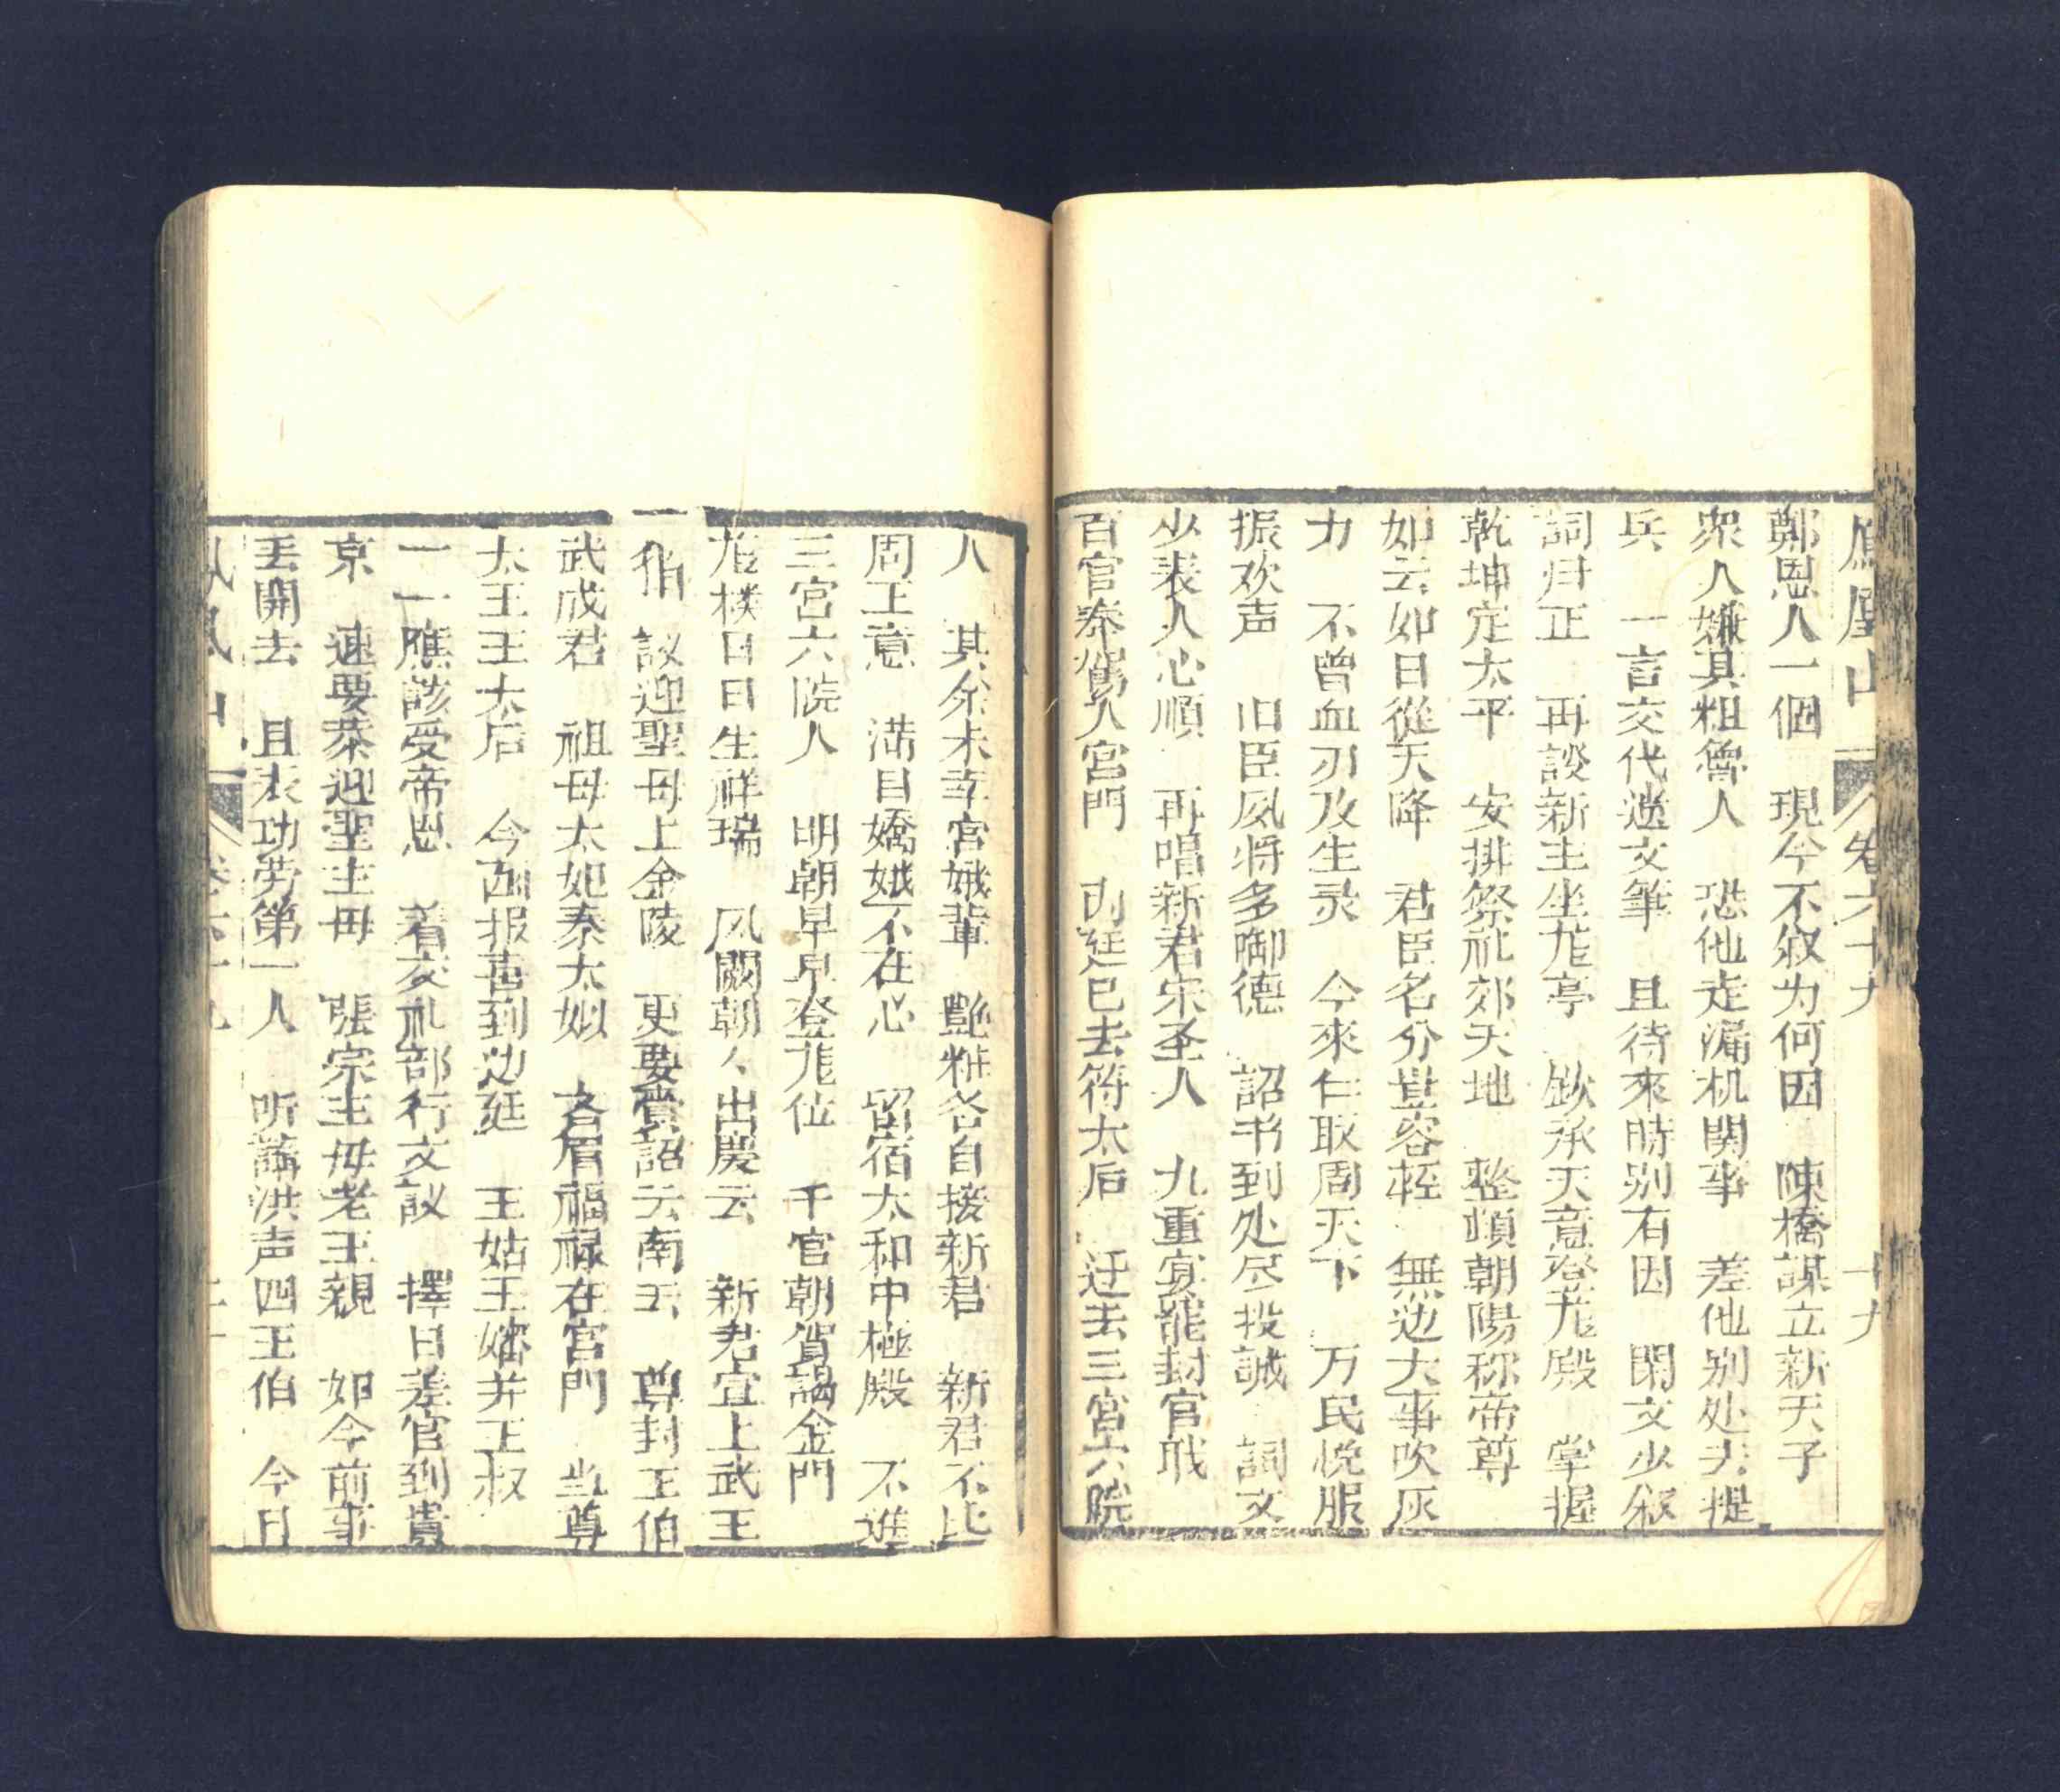 鄭恩人一個　現今不叙为何因　陳橋謀立新天子
衆人嫌其粗魯人　恐他走漏机関事　差他别处去提
兵　一言交代遊文筆　且待來時别有因　閑文少叙
詞归正　再談新主坐龙亭　欽承天意登龙殿　掌握
乾坤定太平　安排祭礼郊天地　整頓朝陽称帝尊
如云如日從天降　君臣名分豈容軽　無边大事吹灰
力　不曾血刃及生灵　今來仁取周天下　万民悦服
振欢声　旧臣风将多啣德　詔书到处尽投誠　詞文
少表人心順　再唱新君宋圣人　九重宴罷封官职
百官泰駕人宮門　前廷已去符太后　迁去三宮六院
人　其余未幸宮娥輩　艷粧各自接新君　新君不比
周王意　満目嬌娥不在心　留宿太和中極殿　不進
三宮六院人　明朝早早登龙位　千官朝賀謁金門
龙楼日日生祥瑞　风闕朝人出慶云　新君宣上武王
伯　議迎聖母上金陵　更要賫詔云南去　尊封王伯
武成君　祖母太妃泰太姒　各眉福禄在宮門　当尊
太王王太后　今函报喜到边廷　王姑王嬸并王叔
一一應該受帝恩　着交礼部行文议　擇日差官到貴
京　速要恭迎聖主毋　張宗主毋老王親　如今前事
丟開去　且表功劳第一人　听講洪声四王伯　今日
卷六十九
十九